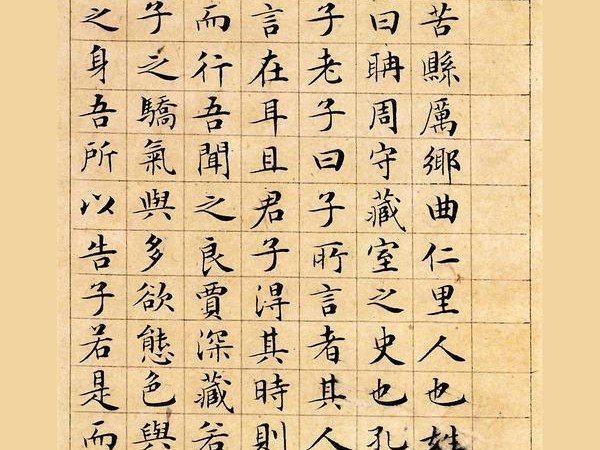 苦縣厲鄉曲仁里人也姓
曰聃周守藏室之史也孔
子老子曰子所言者其人
言在耳且君子得其時則
而行吾聞之良賈深藏若
子之驕氣與多欲態色與
之身吾所以告子若是而